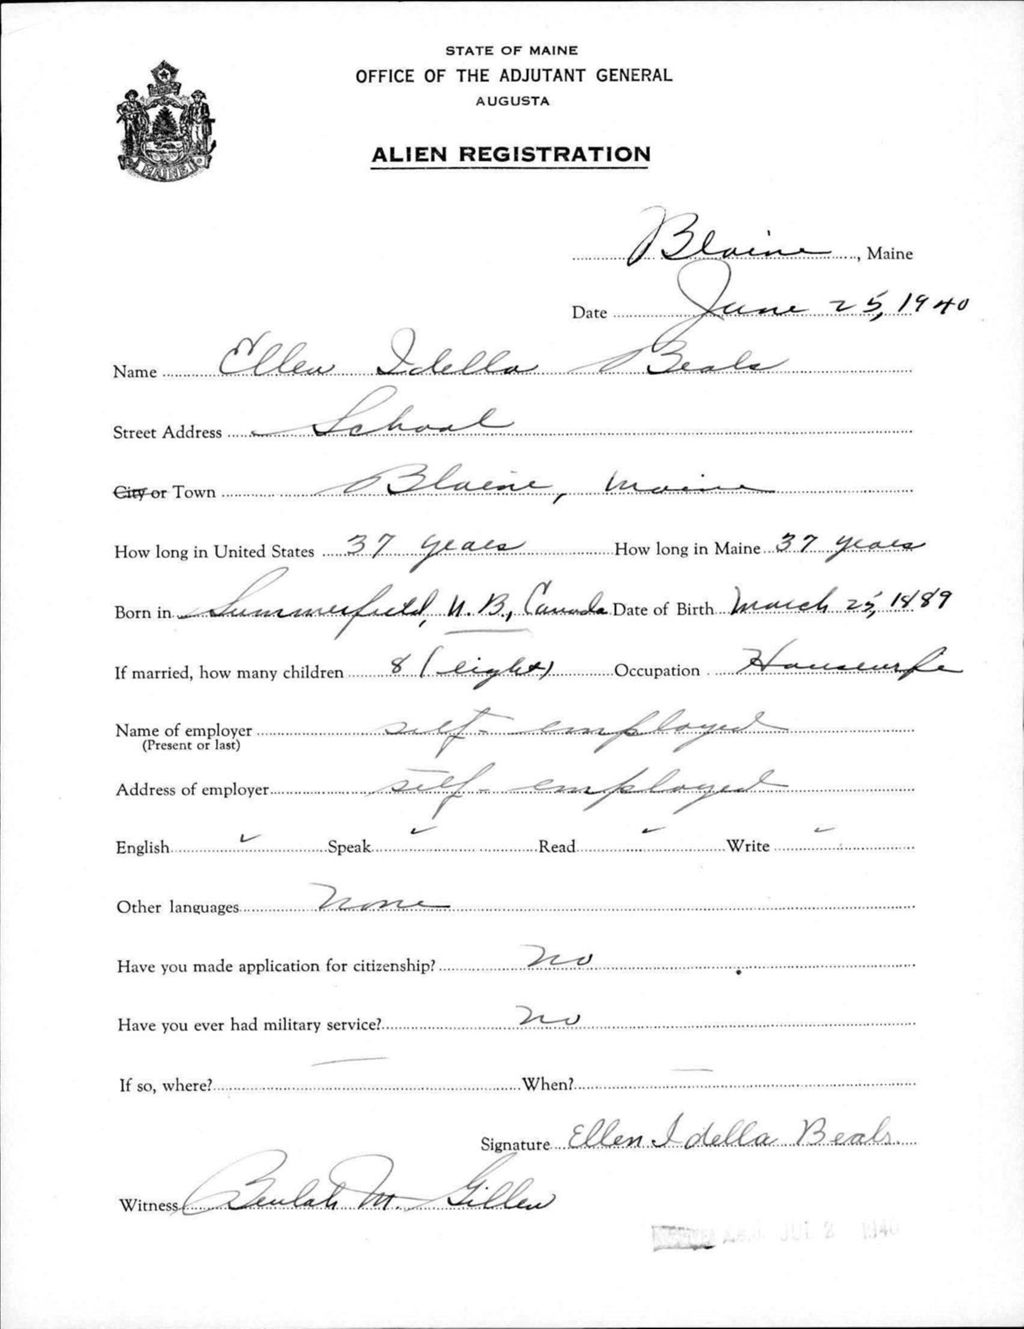 STATE OF MAINE
OFFICE OF THE ADJUTANT GENERAL
AUGUSTA
ALIEN REGISTRATION
MAINE
Blaine, Maine
Date June 25, 1940
Name Ellen Idella Beals
Street Address School
City or Town Blaine, Maine
How long in United States 37 years How long in Maine 37 years
Born in Summerfield, N.B., Canada Date of Birth March 25, 1889
If married, how many children 8 (eight) Occupation Housewife
Name of employer self-employed
(Present or last)
Address of employer self-employed
English ✓ Speak ✓ Read ✓ Write ✓
Other languages None
Have you made application for citizenship? No
Have you ever had military service? No
If so, where? — When? —
Signature Ellen Idella Beals
Witness Beulah M. Gillen
JUL 2 1940